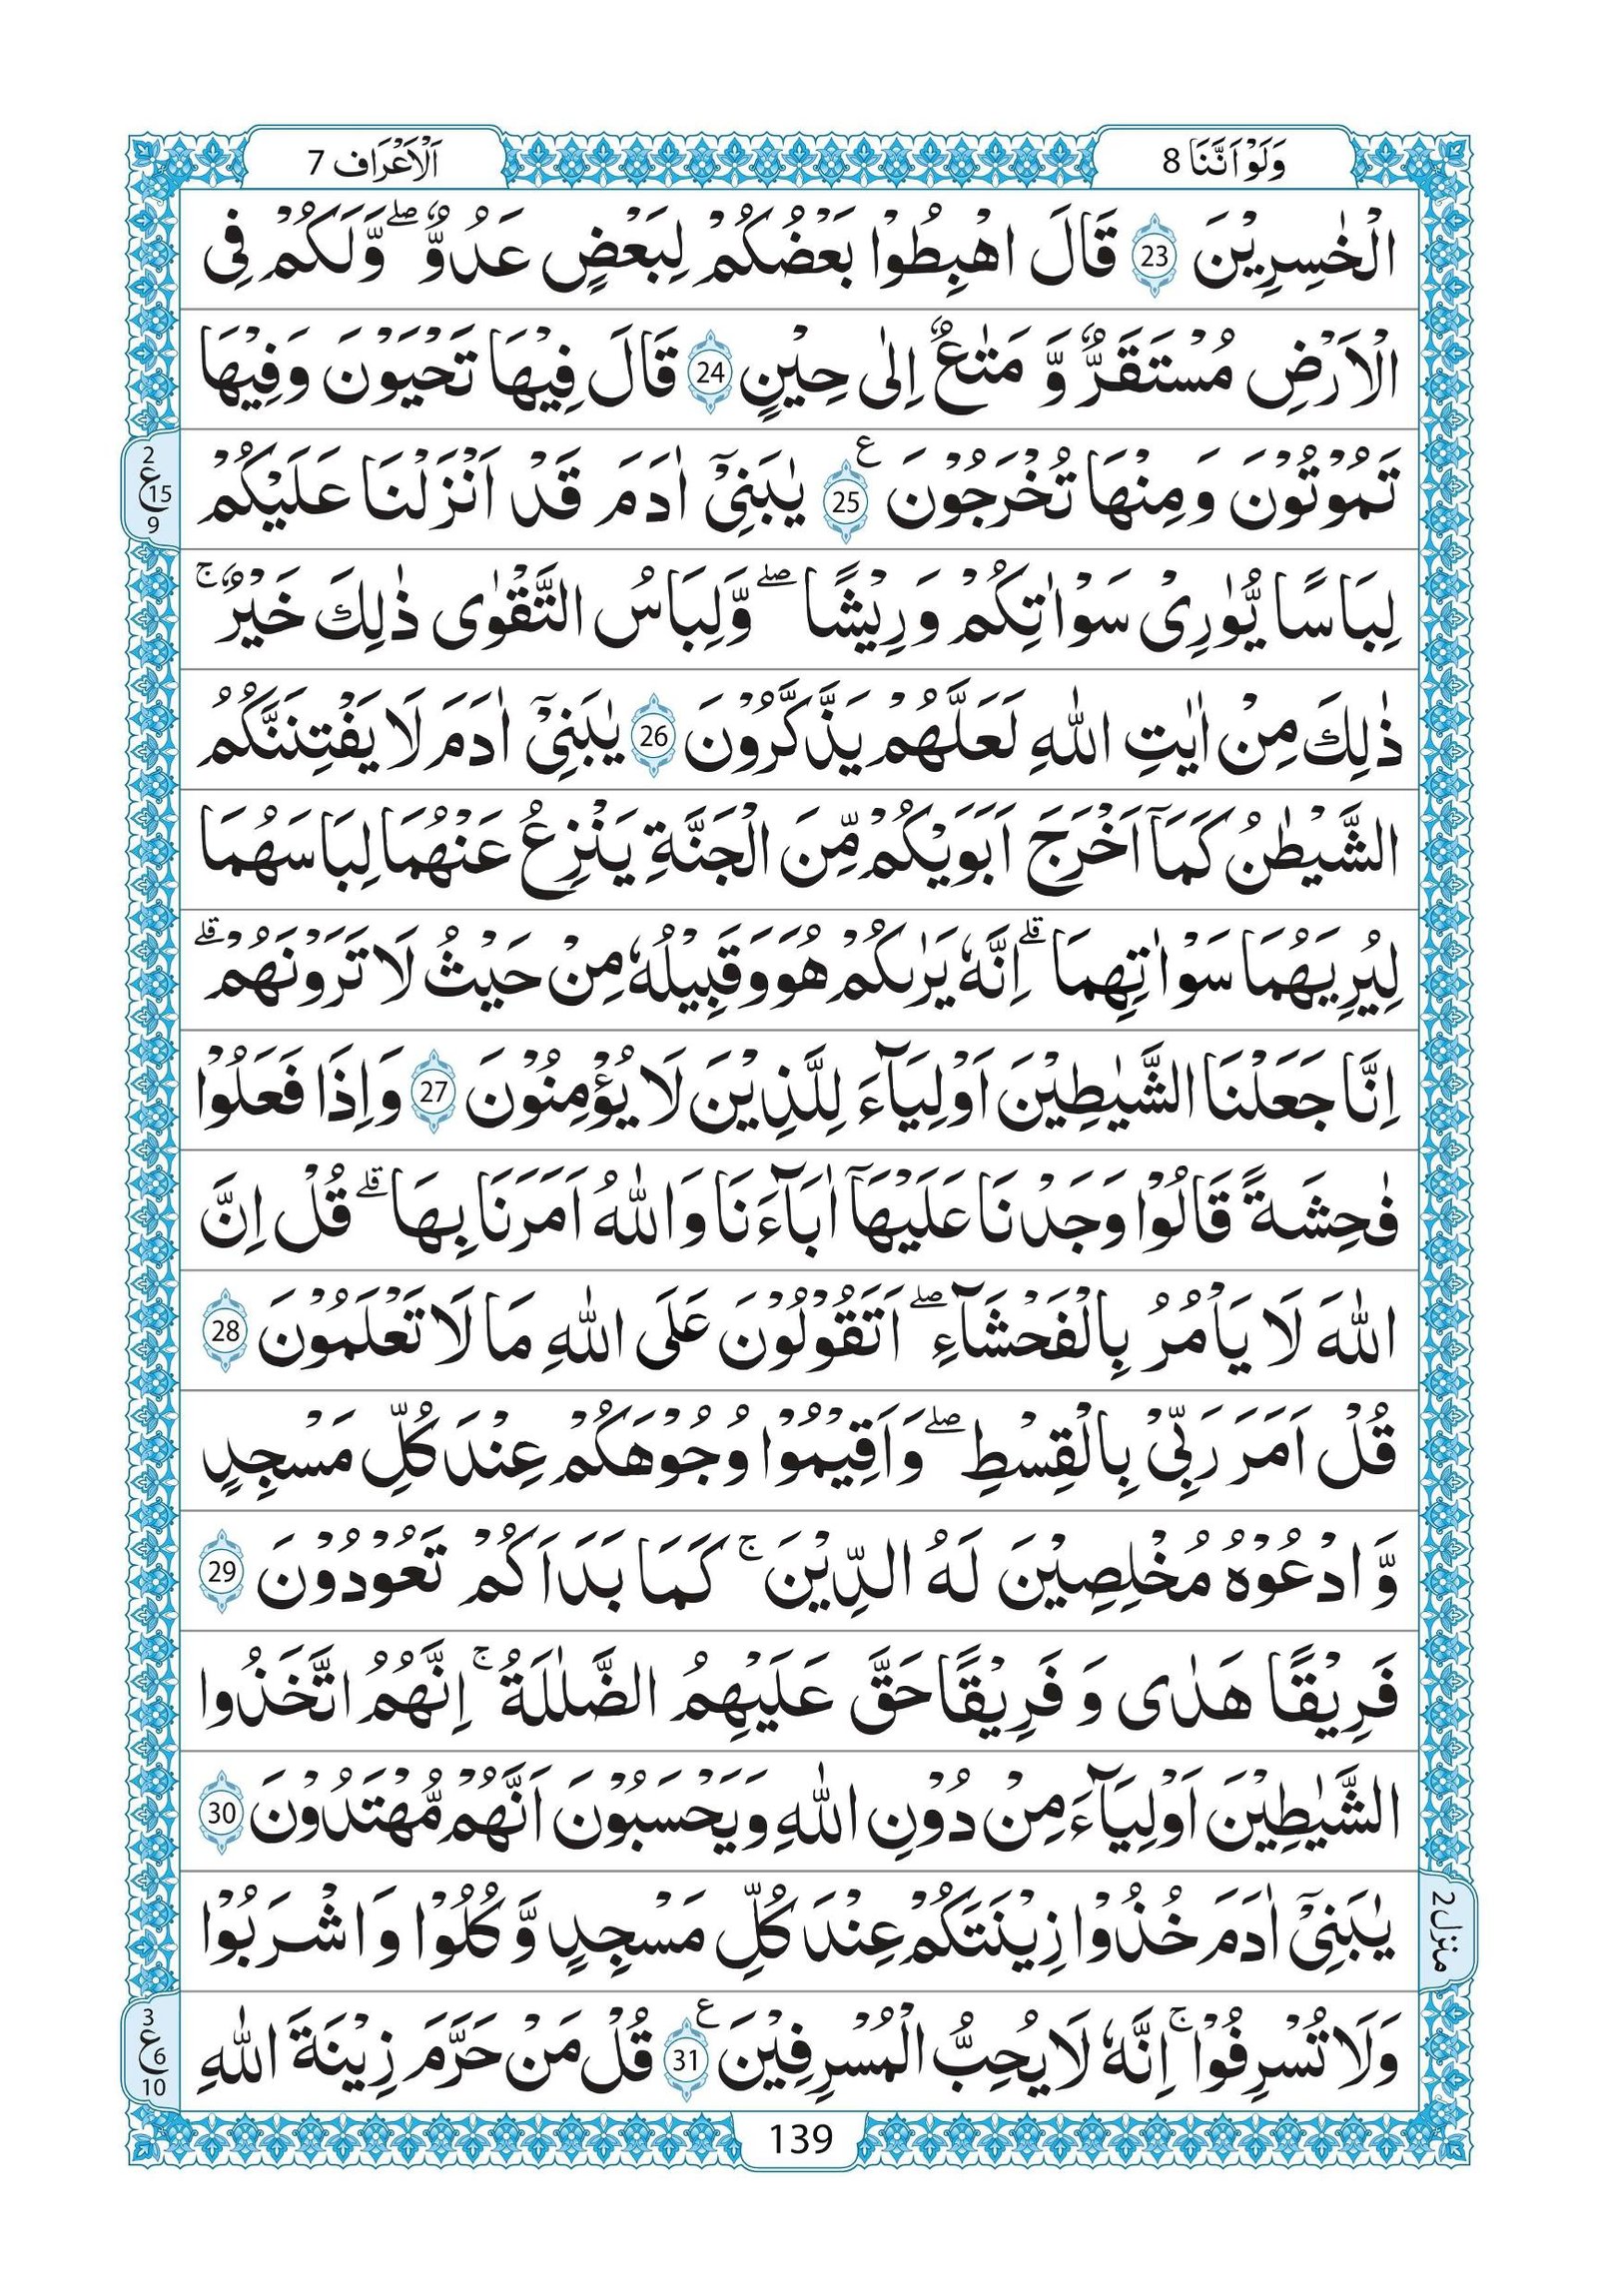 وَلَوْ اَنَّنَا 8
اَلْاَعْرَاف 7
الْخٰسِرِيْنَ 23 قَالَ اهْبِطُوْا بَعْضُكُمْ لِبَعْضٍ عَدُوٌّ ۖ وَّلَكُمْ فِى
الْاَرْضِ مُسْتَقَرٌّ وَّ مَتٰعٌ اِلٰى حِيْنٍ 24 قَالَ فِيْهَا تَحْيَوْنَ وَفِيْهَا
تَمُوْتُوْنَ وَمِنْهَا تُخْرَجُوْنَ ع 25 يٰبَنِىْٓ اٰدَمَ قَدْ اَنْزَلْنَا عَلَيْكُمْ
2
ع 15
9
لِبَاسًا يُّوٰرِىْ سَوْاٰتِكُمْ وَرِيْشًا ۖ وَّلِبَاسُ التَّقْوٰى ذٰلِكَ خَيْرٌ ۚ
ذٰلِكَ مِنْ اٰيٰتِ اللّٰهِ لَعَلَّهُمْ يَذَّكَّرُوْنَ 26 يٰبَنِىْٓ اٰدَمَ لَا يَفْتِنَنَّكُمُ
الشَّيْطٰنُ كَمَآ اَخْرَجَ اَبَوَيْكُمْ مِّنَ الْجَنَّةِ يَنْزِعُ عَنْهُمَا لِبَاسَهُمَا
لِيُرِيَهُمَا سَوْاٰتِهِمَا ۗ اِنَّهٗ يَرٰىكُمْ هُوَ وَقَبِيْلُهٗ مِنْ حَيْثُ لَا تَرَوْنَهُمْ ۗ
اِنَّا جَعَلْنَا الشَّيٰطِيْنَ اَوْلِيَآءَ لِلَّذِيْنَ لَا يُؤْمِنُوْنَ 27 وَاِذَا فَعَلُوْا
فٰحِشَةً قَالُوْا وَجَدْنَا عَلَيْهَآ اٰبَآءَنَا وَاللّٰهُ اَمَرَنَا بِهَا ۗ قُلْ اِنَّ
اللّٰهَ لَا يَاْمُرُ بِالْفَحْشَآءِ ۖ اَتَقُوْلُوْنَ عَلَى اللّٰهِ مَا لَا تَعْلَمُوْنَ 28
قُلْ اَمَرَ رَبِّىْ بِالْقِسْطِ ۖ وَاَقِيْمُوْا وُجُوْهَكُمْ عِنْدَ كُلِّ مَسْجِدٍ
وَّ ادْعُوْهُ مُخْلِصِيْنَ لَهُ الدِّيْنَ ۚ كَمَا بَدَاَكُمْ تَعُوْدُوْنَ 29
فَرِيْقًا هَدٰى وَ فَرِيْقًا حَقَّ عَلَيْهِمُ الضَّلٰلَةُ ۚ اِنَّهُمُ اتَّخَذُوا
الشَّيٰطِيْنَ اَوْلِيَآءَ مِنْ دُوْنِ اللّٰهِ وَيَحْسَبُوْنَ اَنَّهُمْ مُّهْتَدُوْنَ 30
يٰبَنِىْٓ اٰدَمَ خُذُوْا زِيْنَتَكُمْ عِنْدَ كُلِّ مَسْجِدٍ وَّ كُلُوْا وَاشْرَبُوْا
منزل 2
وَلَا تُسْرِفُوْا ۚ اِنَّهٗ لَا يُحِبُّ الْمُسْرِفِيْنَ ع 31 قُلْ مَنْ حَرَّمَ زِيْنَةَ اللّٰهِ
3
ع 6
10
139